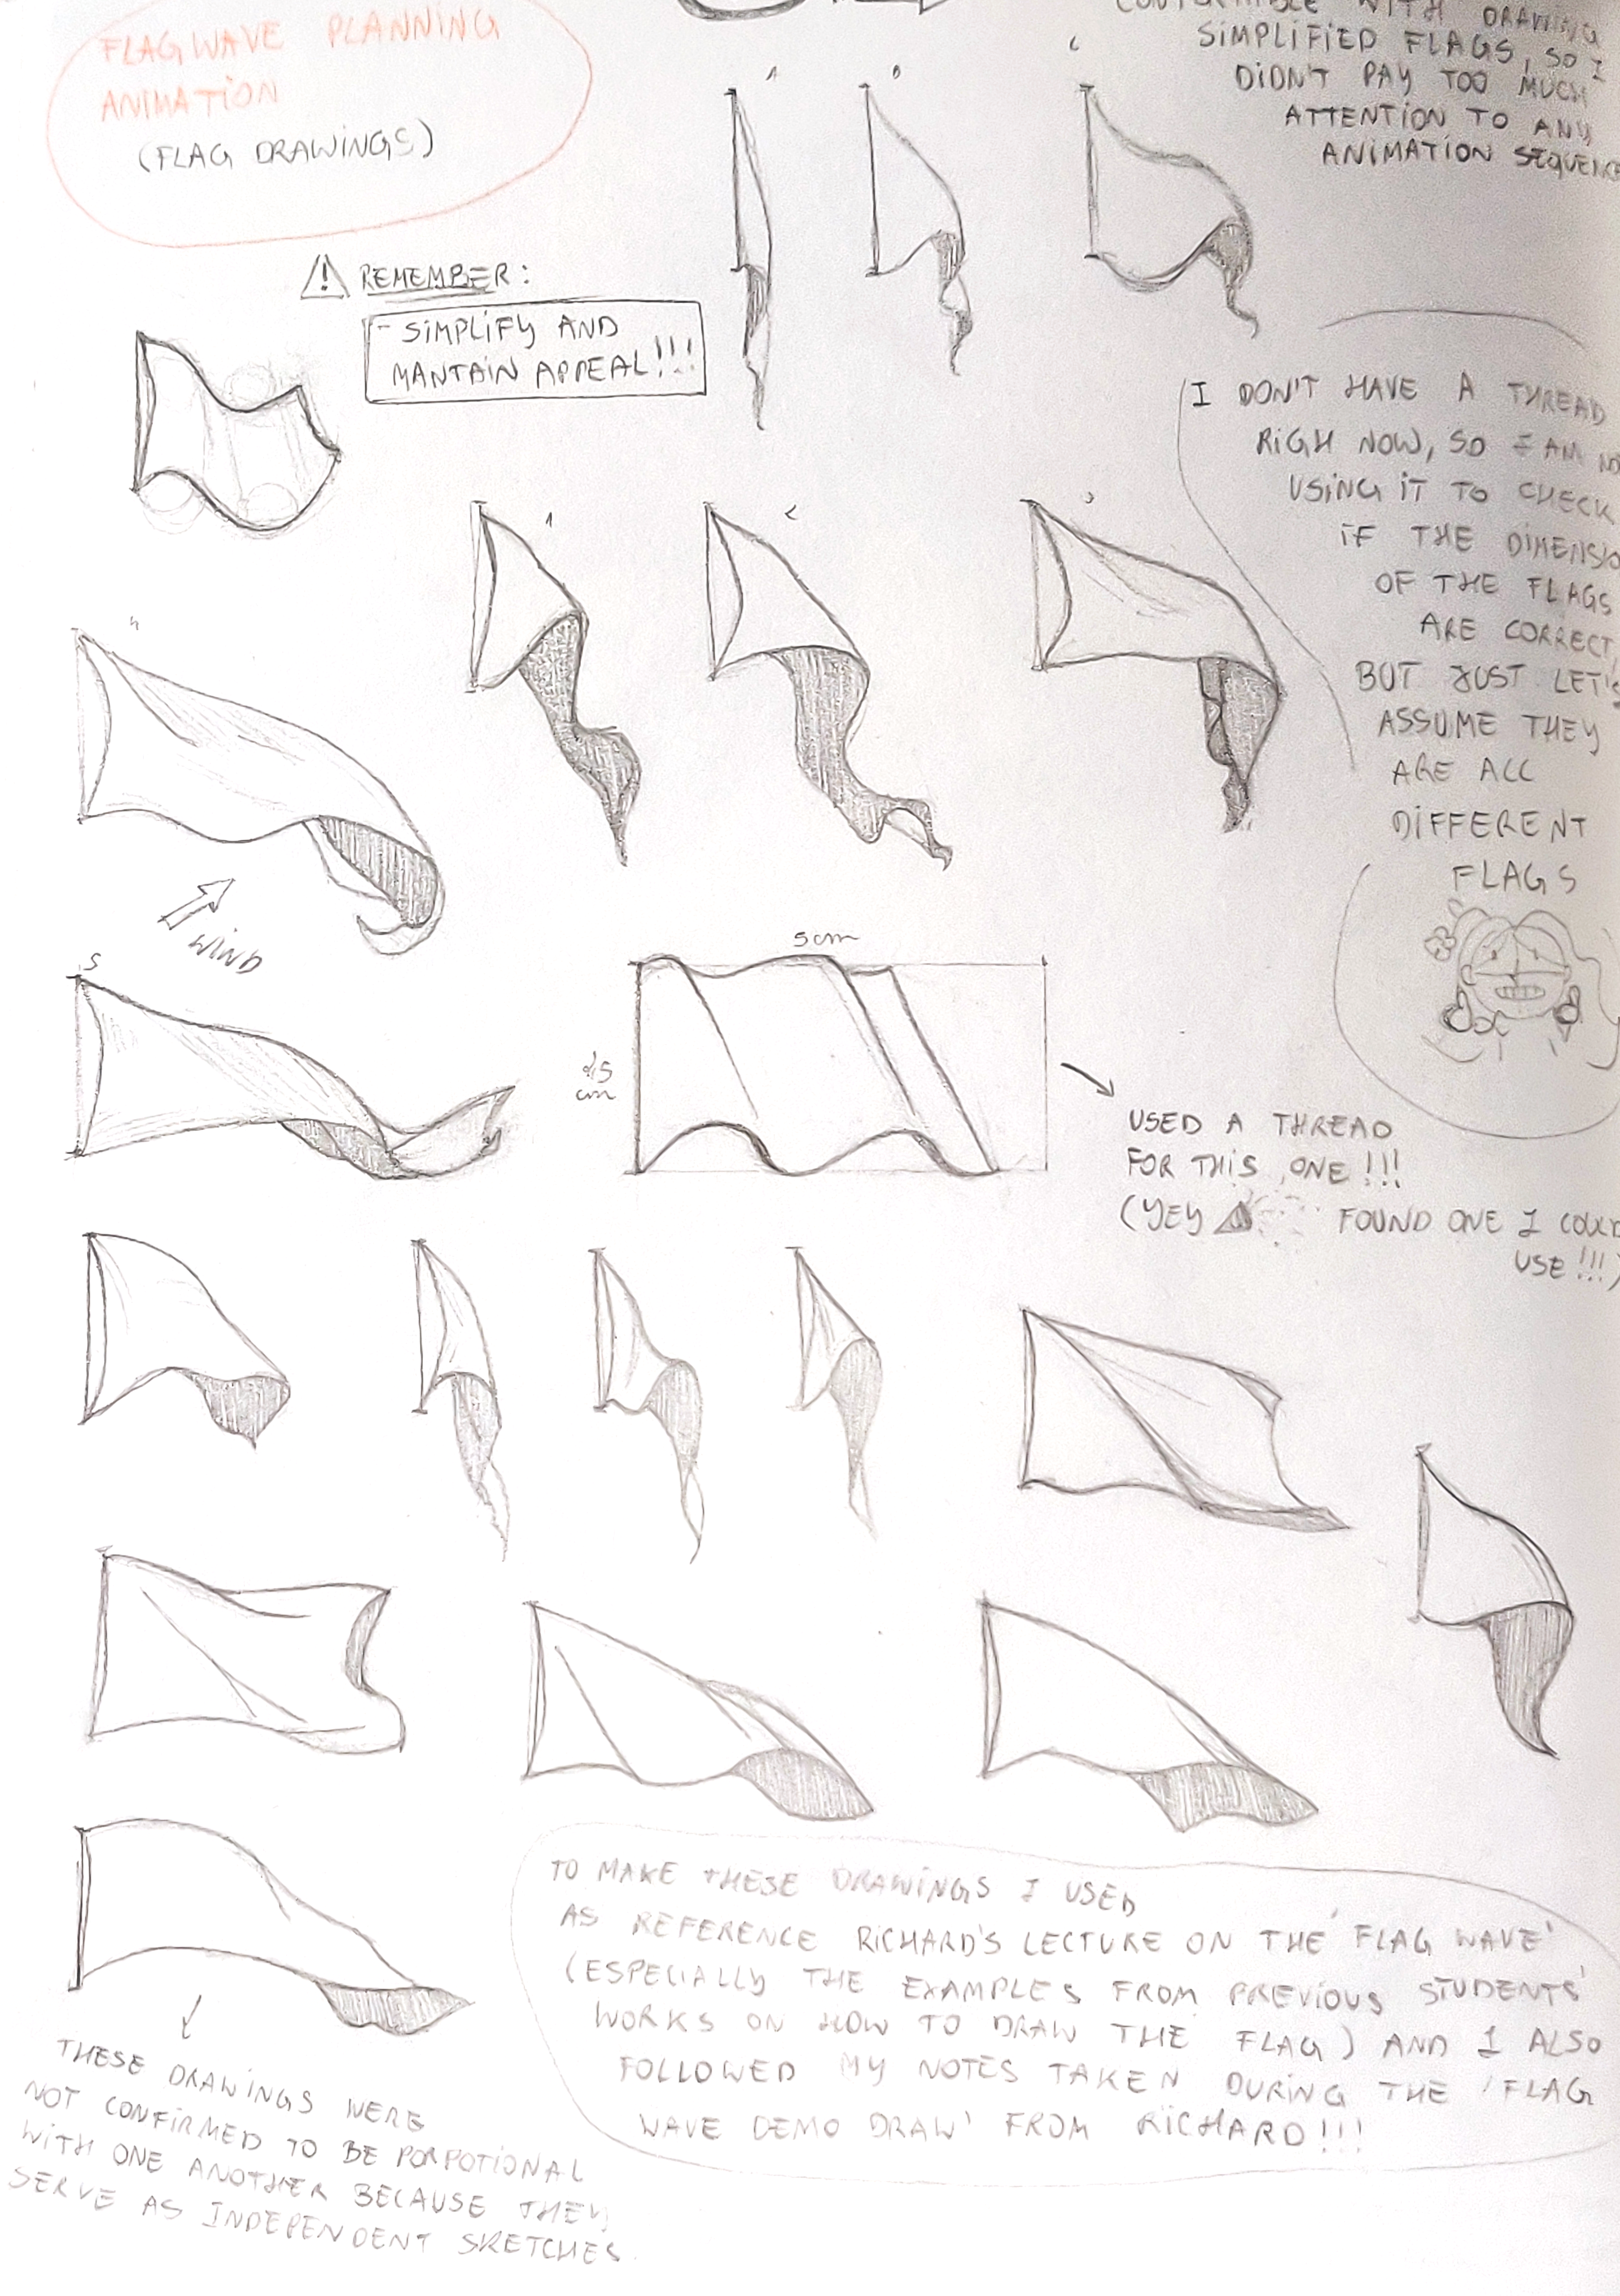 FLAG WAVE PLANNING
ANIMATION
(FLAG DRAWINGS)
WITH DRAWING
SIMPLIFIED FLAGS, SO I
DIDN'T PAY TOO MUCH
ATTENTION TO ANY
ANIMATION
REMEMBER:
- SIMPLIFY AND
MANTAIN APPEAL!!!
I DON'T HAVE A THREAD
RIGH NOW, SO I AM
USING IT TO CHECK
IF THE
OF THE FLAGS
ARE CORRECT,
BUT JUST LET'S
ASSUME THEY
ARE ALL
DIFFERENT
FLAGS
1
2
3
4
WIND
5
5cm
cm
USED A THREAD
FOR THIS ONE!!!
(YEY FOUND ONE I COULD
USE!!!)
TO MAKE THESE DRAWINGS I USED
AS REFERENCE RICHARD'S LECTURE ON THE 'FLAG WAVE'
(ESPECIALLY THE EXAMPLES FROM PREVIOUS STUDENTS'
WORKS ON HOW TO DRAW THE FLAG) AND I ALSO
FOLLOWED MY NOTES TAKEN DURING THE 'FLAG
WAVE DEMO DRAW' FROM RICHARD!!!
THESE DRAWINGS WERE
NOT CONFIRMED TO BE PORPOTIONAL
WITH ONE ANOTHER BECAUSE THEY
SERVE AS INDEPENDENT SKETCHES.